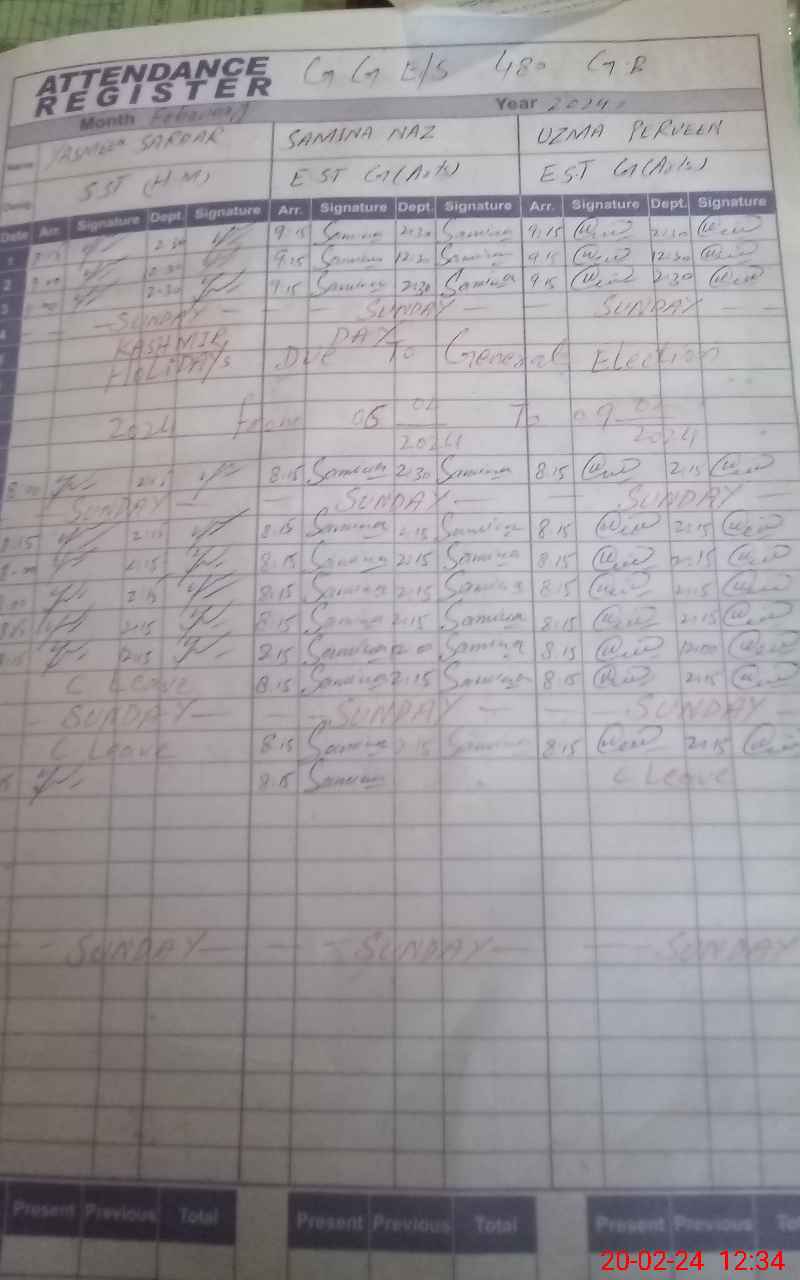 ATTENDANCE REGISTER G G E/S 480 G.B
Month February Year 2024
Name YASMEEN SARDAR SAMINA NAZ UZMA PERVEEN
Desig SST (H.M) EST G(Arts) EST G(Arts)
Date Arr. Signature Dept. Signature Arr. Signature Dept. Signature Arr. Signature Dept. Signature
1 2:30 9:15 Samina 2:30 Samina 9:15 2:30
12:30 9:15 Samina 12:30 Samina 9:15 12:30
2 2:30 9:15 Samina 2:30 Samina 9:15 2:30
3 SUNDAY SUNDAY SUNDAY
4 KASHMIR DAY
HOLIDAYS Due To General Election
2024 from 05 02 2024 To 09 02 2024
8:00 2:15 8:15 Samina 2:30 Samina 8:15 2:15
SUNDAY SUNDAY SUNDAY
8:15 2:15 8:15 Samina 2:15 Samina 8:15 2:15
8:00 2:15 8:15 Samina 2:15 Samina 8:15 2:15
2:15 8:15 Samina 2:15 Samina 8:15 2:15
2:15 8:15 Samina 2:15 Samina 8:15 2:15
8:15 12:15 8:15 Samina 12:00 Samina 8:15 12:00
C Leave 8:15 Samina 2:15 Samina 8:15 2:15
SUNDAY SUNDAY SUNDAY
C Leave 8:15 Samina 2:15 Samina 8:15 2:15
8:15 Samina C Leave
SUNDAY SUNDAY SUNDAY
Present Previous Total Present Previous Total Present Previous
20-02-24 12:34